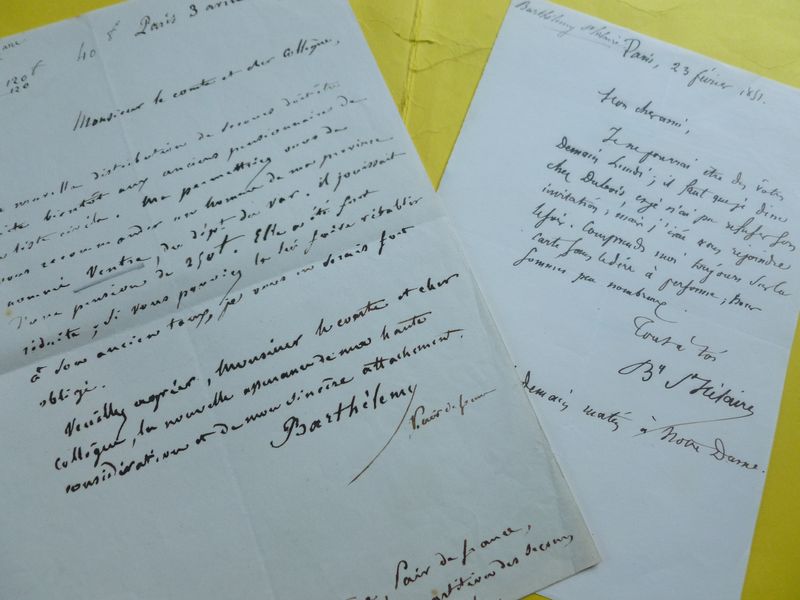 120 f
120
40 f
Paris 3 avril
Monsieur le comte et cher Collègue,
nouvelle distribution de secours doit être
bientôt aux anciens pensionnaires de
liste civile. Me permettriez vous de
vous recommander un homme de ma province
nommé Ventre, du dépt du Var. il jouissait
d'une pension de 250 f. Elle a été fort
réduite; si vous pouviez la lui faire rétablir
à son ancien taux, je vous en serais fort
obligé.
Veuillez agréer, Monsieur le comte et cher
Collègue, la nouvelle assurance de ma haute
considération et de mon sincère attachement.
Barthélemy
Pair de france
Pair de france,
des secours,
Barthélemy St Hilaire
Paris, 23 février 1851.
Mon cher ami,
Je ne pourrai être des vôtres
Demain Lundi; il faut que je dîne
chez Dubois, et je n'ai pu refuser son
invitation; mais j'irai vous rejoindre
le soir. Comprends moi toujours sur la
carte sans le dire à personne; nous
sommes peu nombreux.
Tout à toi
By St Hilaire
Demain matin à Notre Dame.